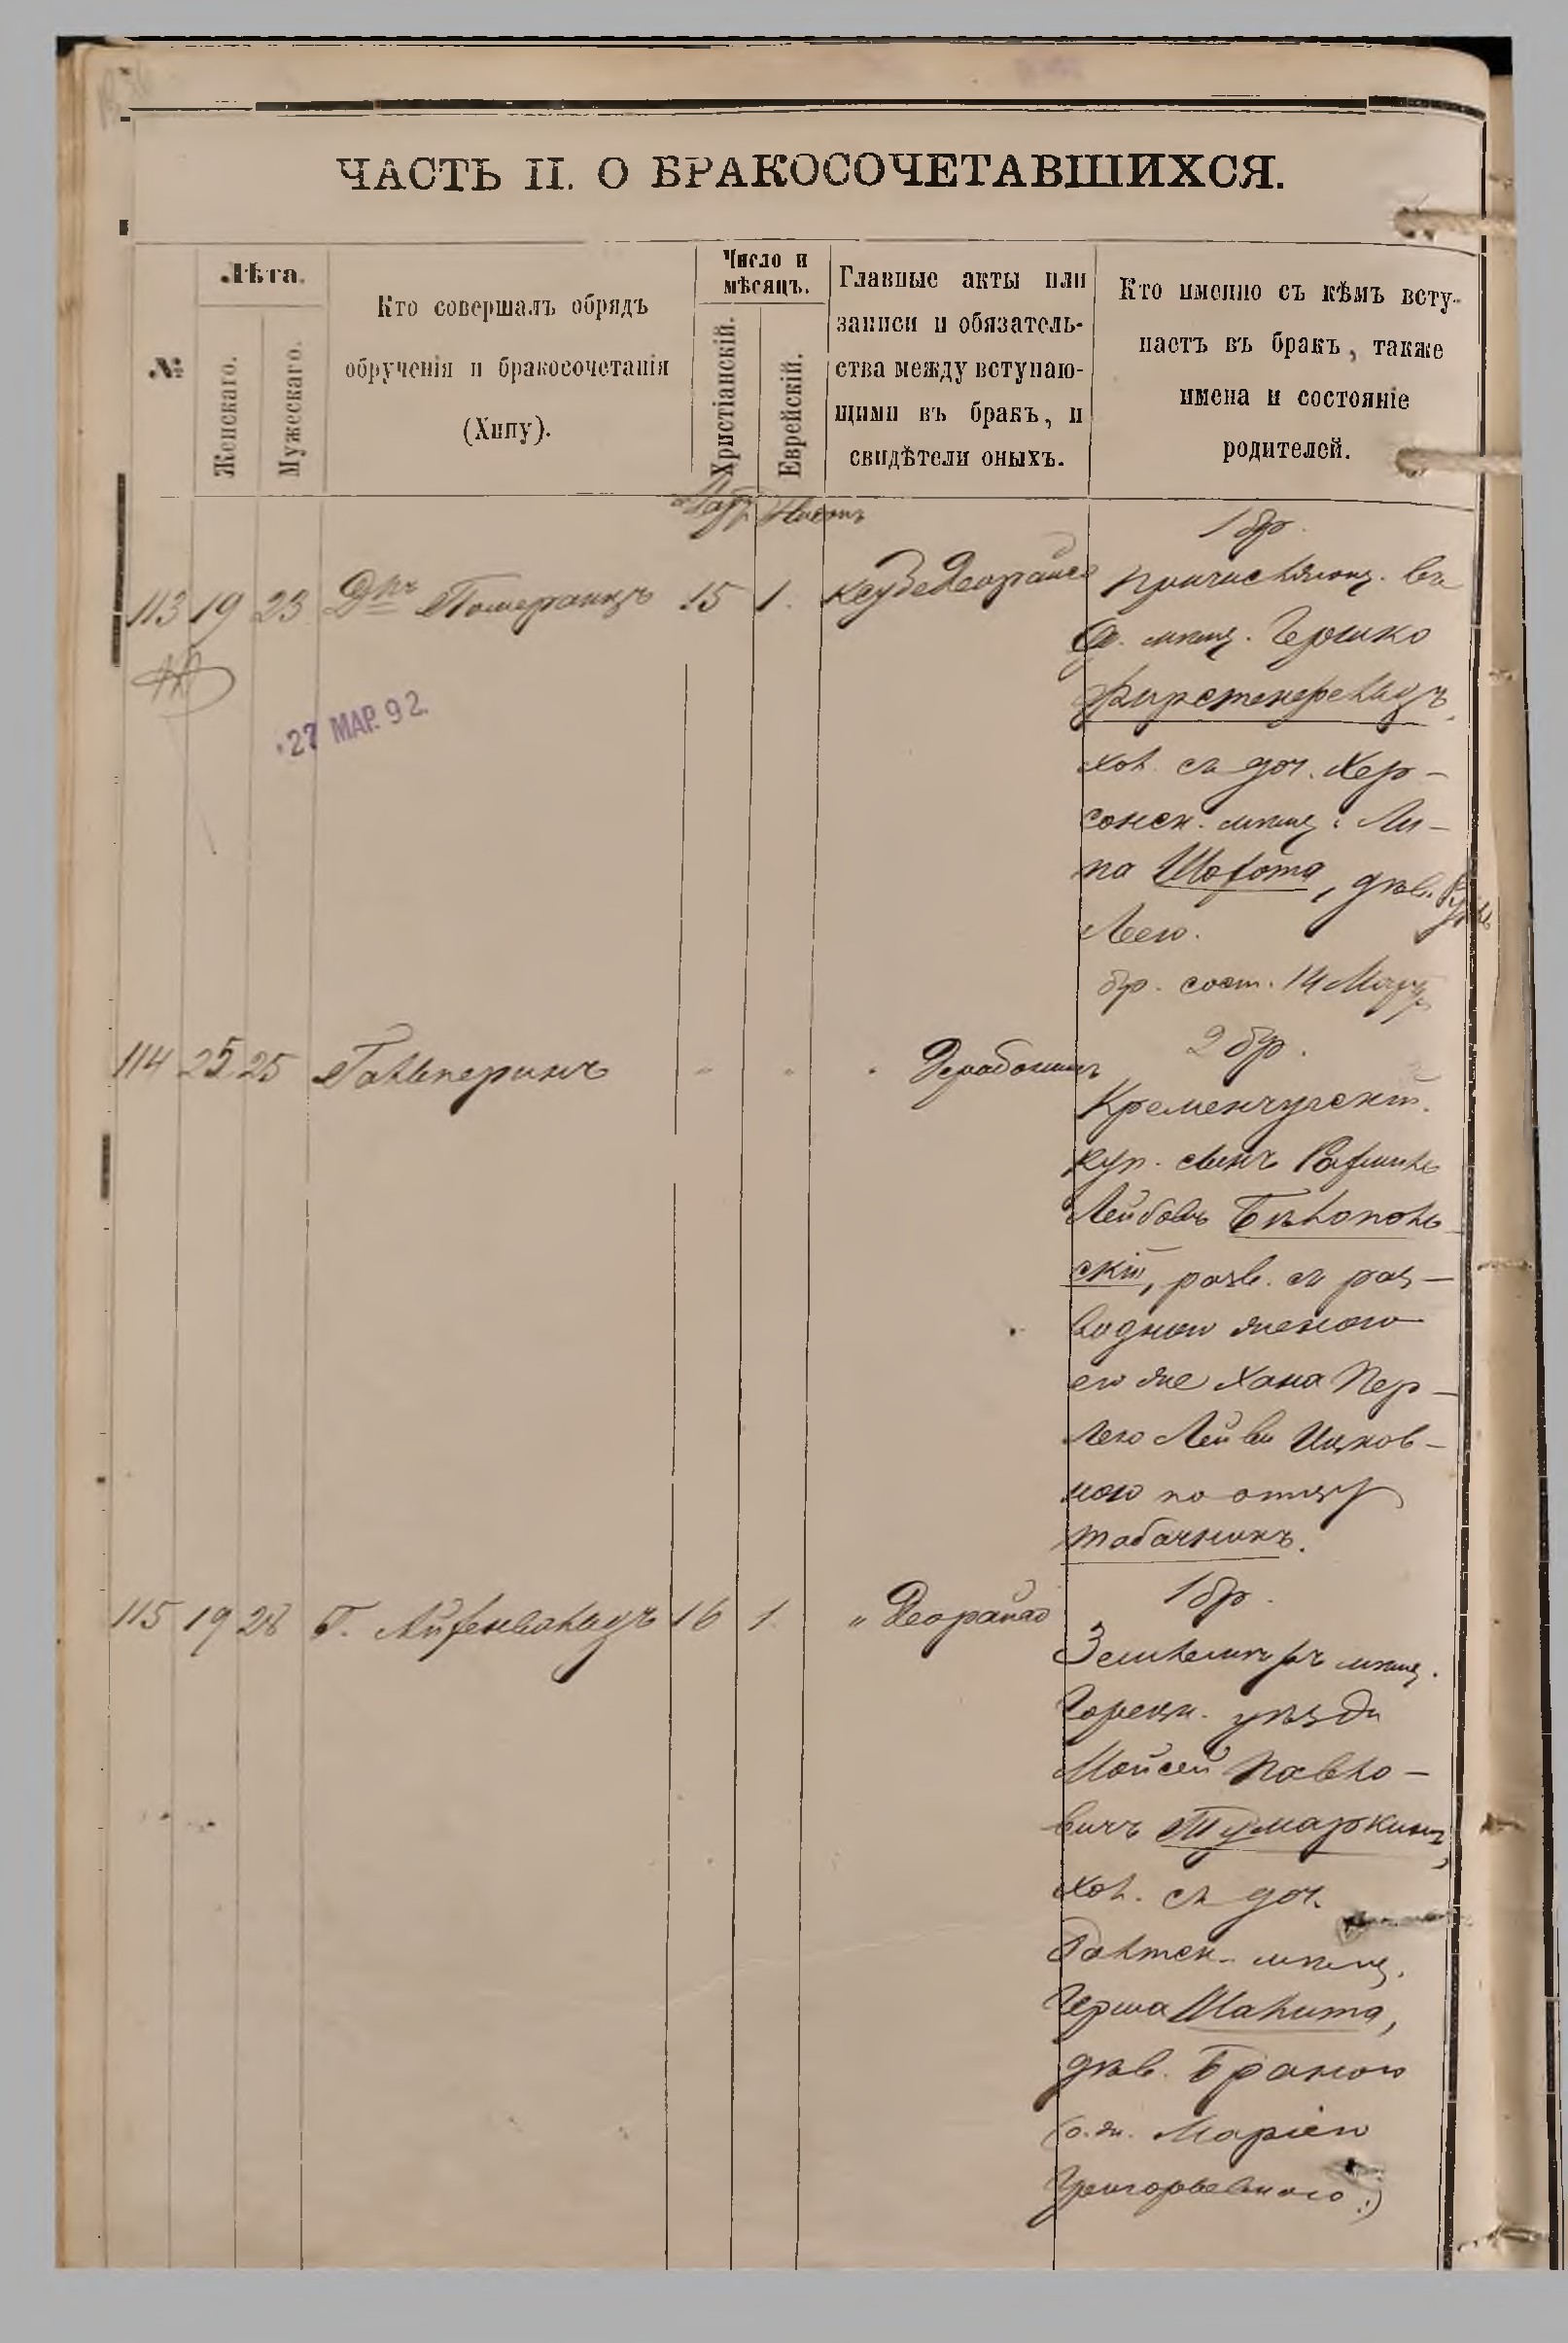 ЧАСТЬ II. О БРАКОСОЧЕТАВШИХСЯ.
№
Лѣта.
Женскаго.
Мужескаго.
Кто совершалъ обрядъ
обрученія и бракосочетанія
(Хипу).
Число и
мѣсяцъ.
Христіанскій.
Еврейскій.
Главные акты или
записи и обязатель-
ства между вступаю-
щими въ бракъ, и
свидѣтели оныхъ.
Кто именно съ кѣмъ всту-
паетъ въ бракъ, также
имена и состояніе
родителей.
Нисонъ
1 бр.
113 19 23 Померанцъ 15 1.
мѣщ. Гершко
27 МАР. 92.
хол. съ доч. Хер-
сонск. мѣщ. Ли-
па Шафота, дѣв.
Леею.
бр. сост. 14
2 бр.
114 25 25 Гальперинъ
Кременчугск.
куп. сынъ
Лейбовъ Бѣлополь
скій, разв. съ раз-
водною женою
его же Хана Пер-
лею Лейви Ицков-
ною по отцу
Табачникъ.
1 бр.
115 19 28 Г. Айзенвальдъ 16 1.
мѣщ.
Горецк. уѣзда
Мойсей Павло-
вичъ Тумаркинъ,
хол. съ доч.
Балтск. мѣщ.
Герша Шахита,
дѣв. Браною
(о.ж. Маріею
Григорьевною.)